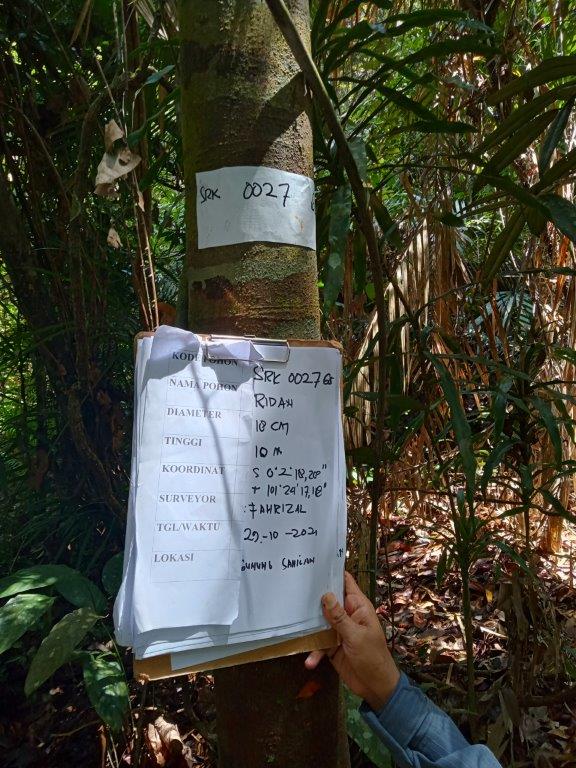 SRK 0027
KODE POHON SRK 0027
NAMA POHON RIDAN
DIAMETER 18 CM
TINGGI 10 m
KOORDINAT S 0°2'18,20"
+ 101°24'17,18"
SURVEYOR : FAHRIZAL
TGL/WAKTU 29-10-2021
LOKASI GUNUNG SAHILAN